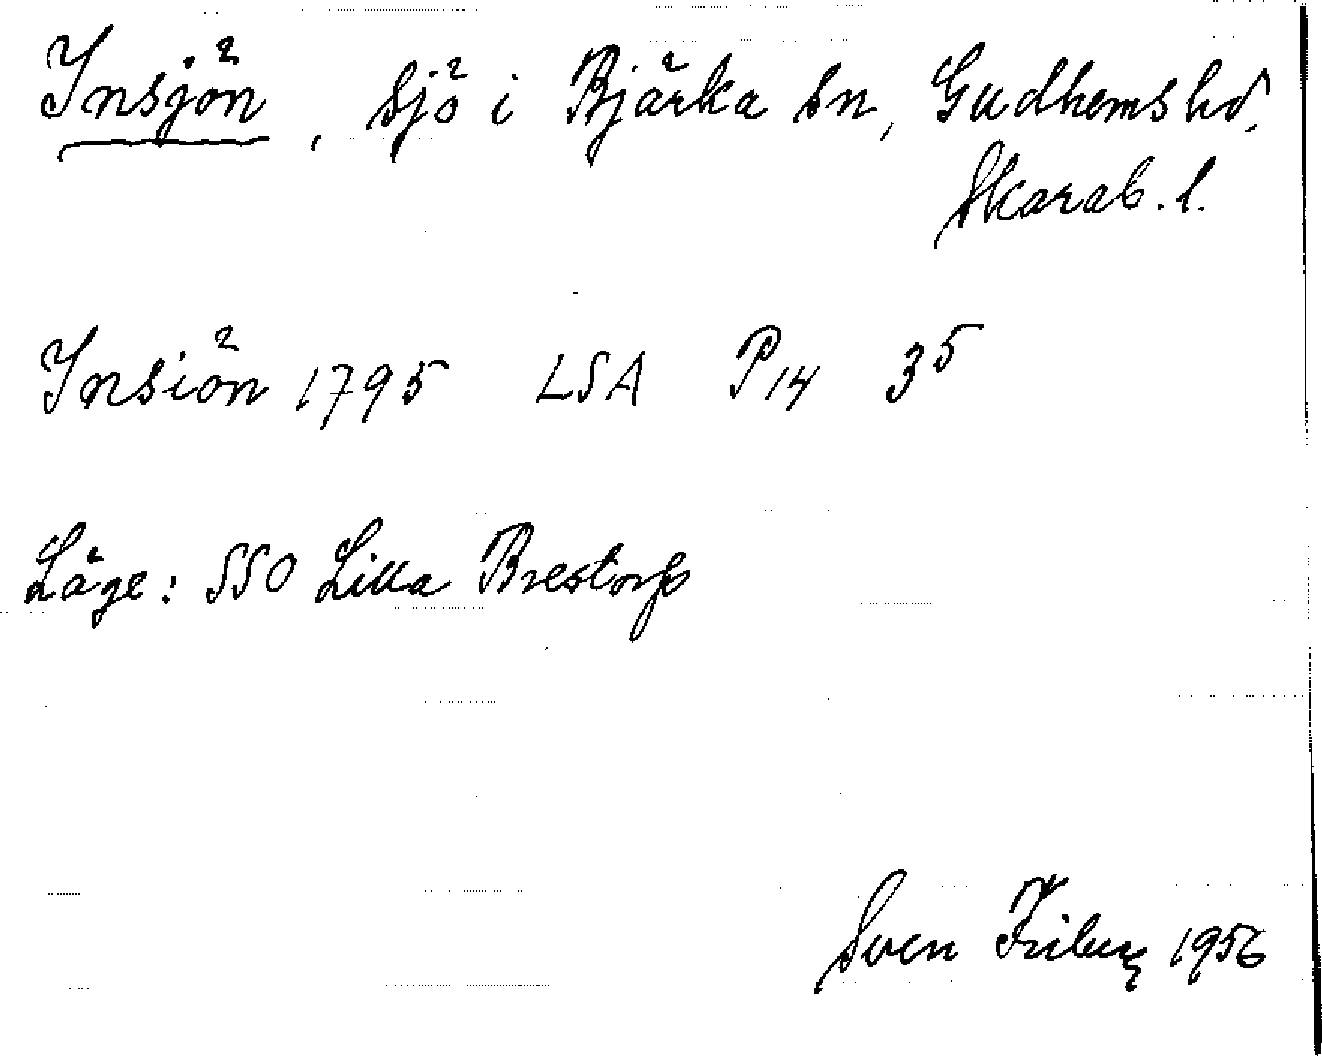 Insjön, sjö i Bjärka sn, Gudhems hd,
Skarab. l.
Insiön 1795 LSA P14 35
Läge: SSO Lilla Brestorp
Sven Friberg 1956